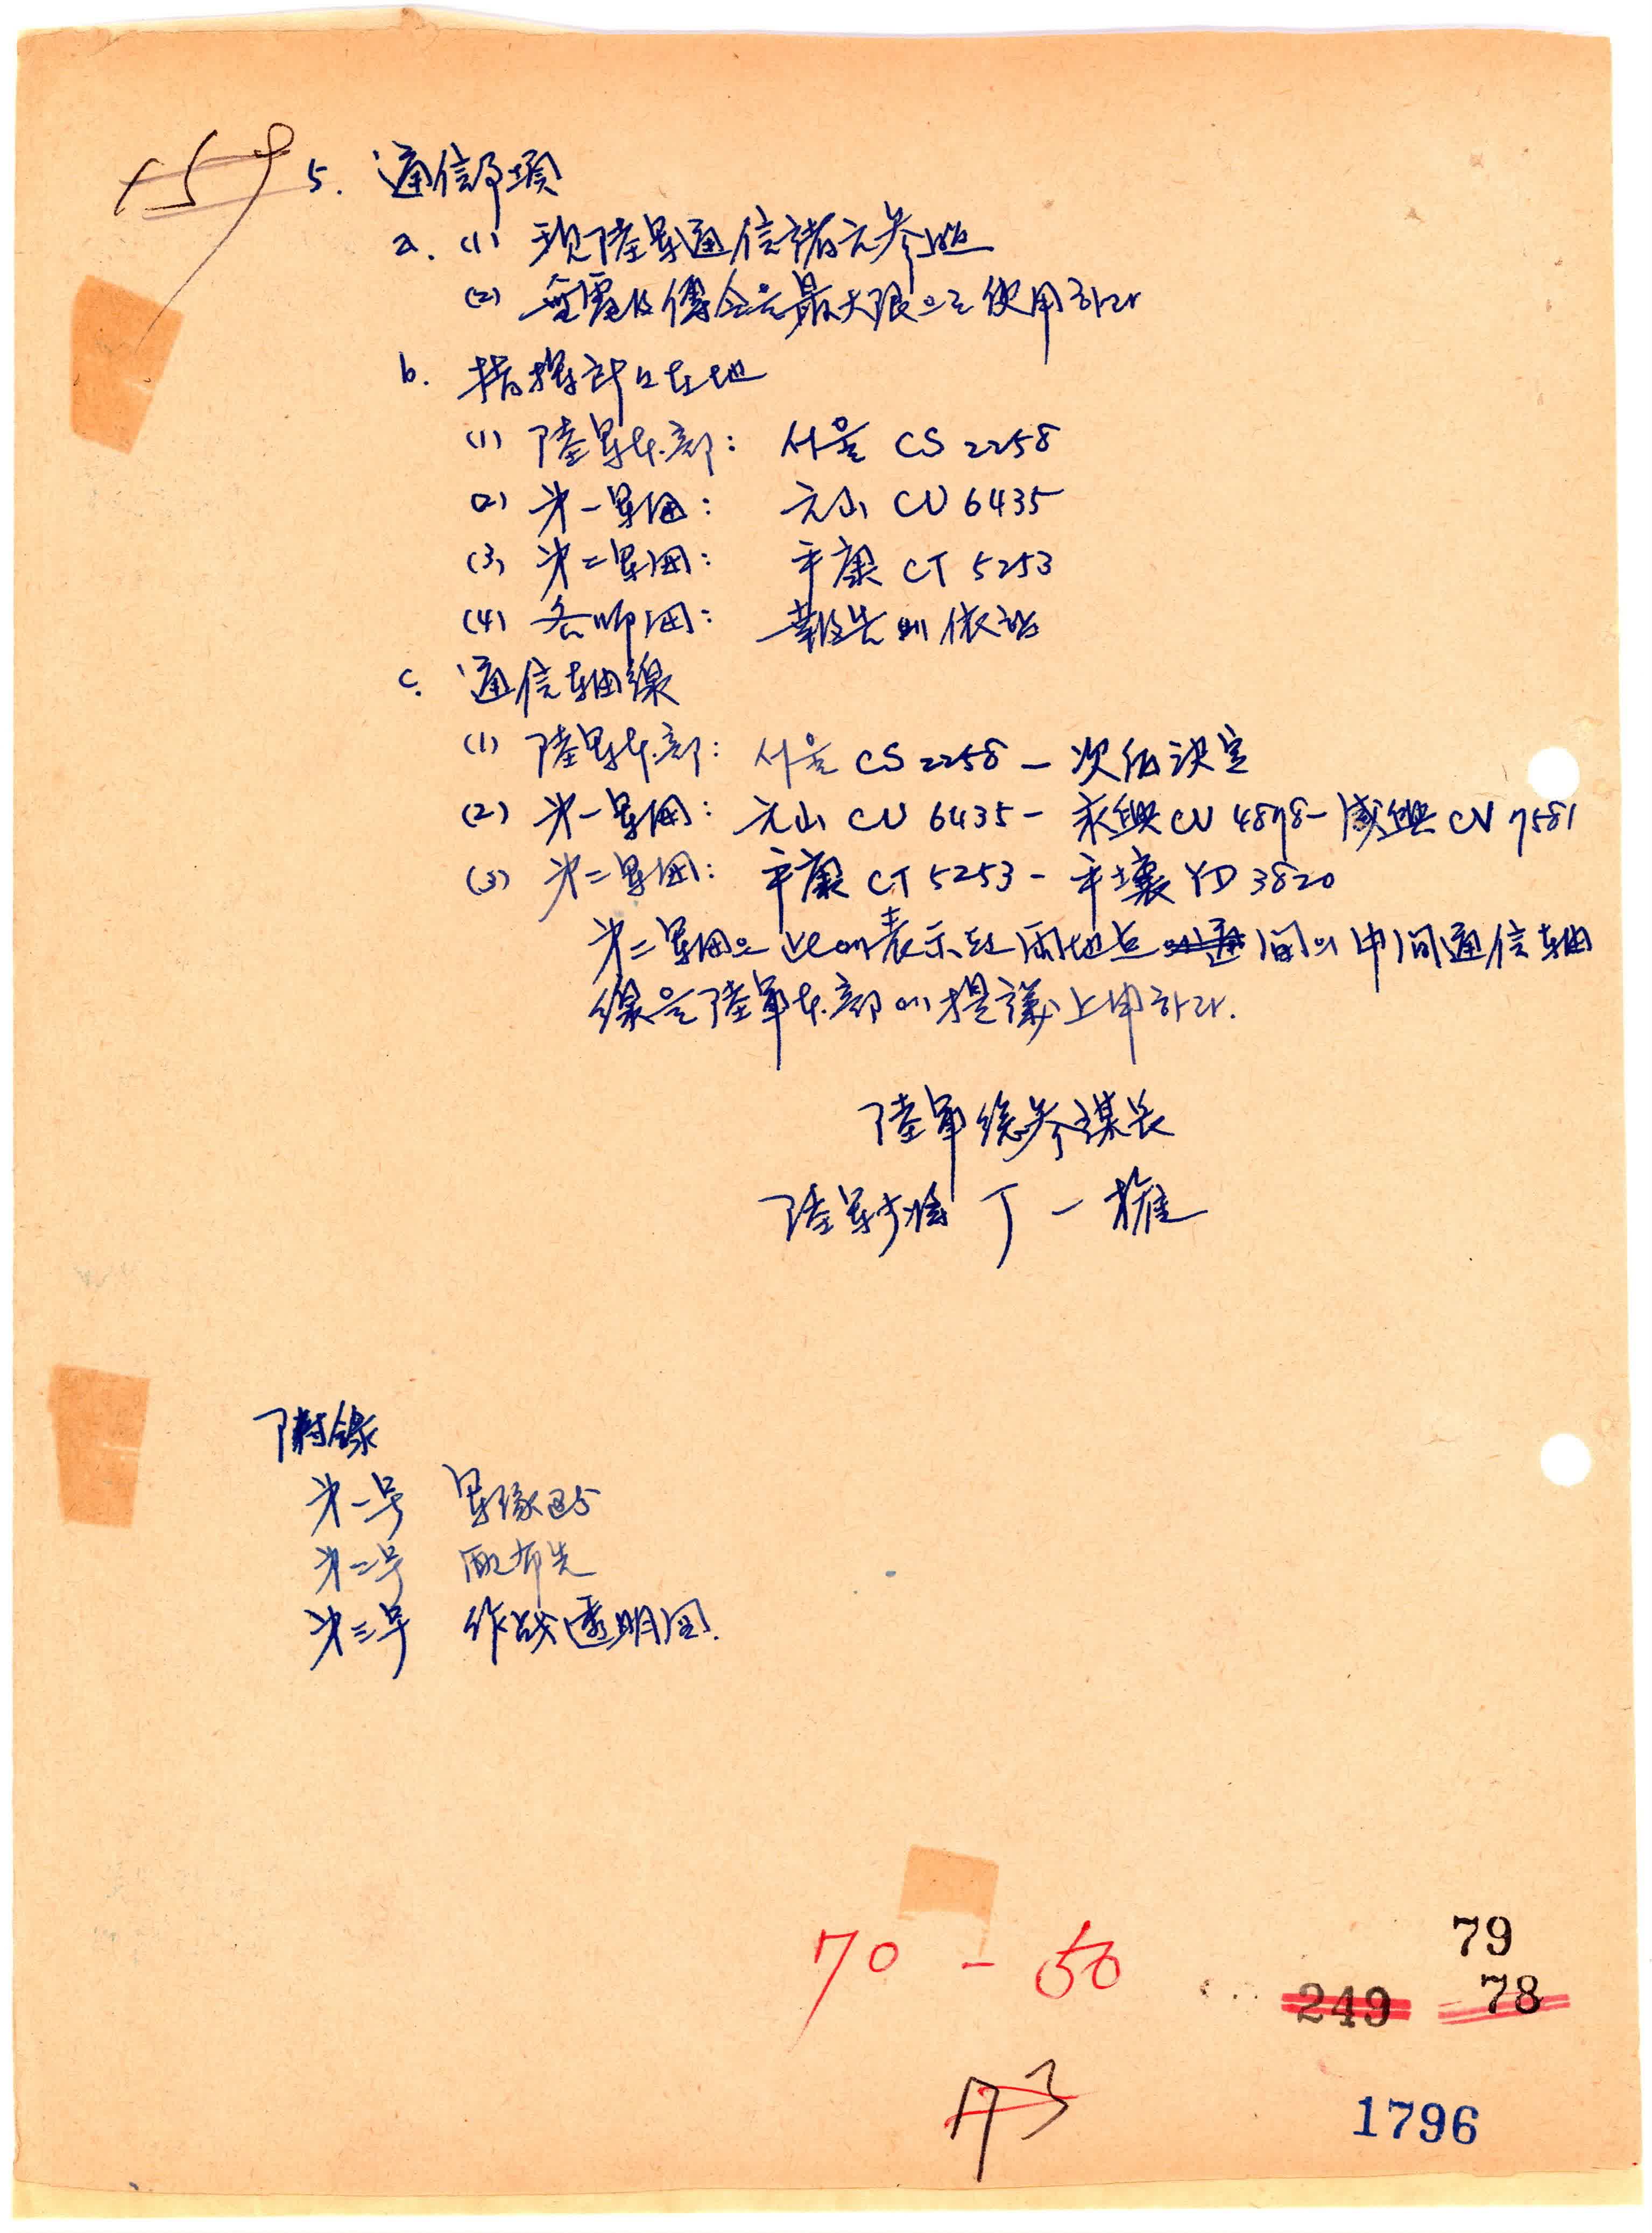 159
5. 通信事項
a. (1) 現陸軍通信諸元參照
(2) 無電及傳令을 最大限으로 使用하라
b. 指揮所 所在地
(1) 陸軍本部: 서울 CS 2258
(2) 第一軍團: 元山 CU 6435
(3) 第二軍團: 平康 CT 5253
(4) 各師團: 報告에 依함
c. 通信軸線
(1) 陸軍本部: 서울 CS 2258 - 次后決定
(2) 第一軍團: 元山 CU 6435 - 永興 CU 4898 - 咸興 CV 7581
(3) 第二軍團: 平康 CT 5253 - 平壤 YD 3820
第二軍團은 此에 表示된 兩地点 間의 中間通信軸
線을 陸軍本部에 提議上申하라.
陸軍總參謀長
陸軍少將 丁一權
附錄
第一号 軍隊區分
第二号 配布先
第三号 作戰透明図.
70 - 50
79
249 78
173
1796